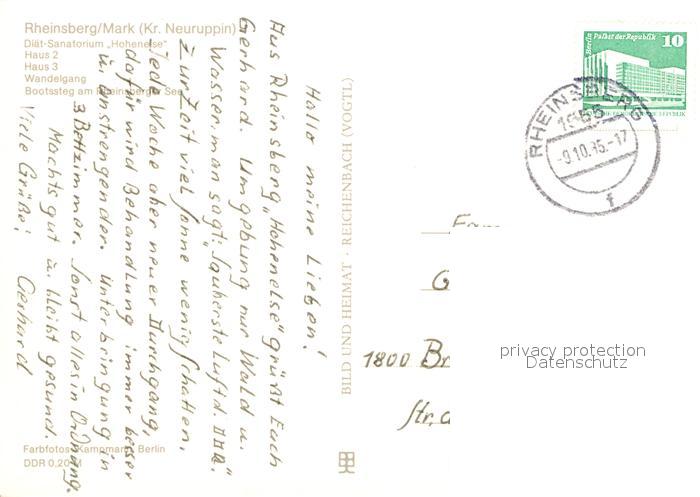 Rheinsberg/Mark (Kr. Neuruppin)
Diät-Sanatorium „Hohenelse"
Haus 2
Haus 3
Wandelgang
Bootssteg am Rheinsberger See
Hallo meine Lieben!
Aus Rheinsberg „Hohenelse" grüßt Euch
Gerhard. Umgebung nur Wald u.
Wasser, man sagt: „Sauberste Luft d. DDR".
Zur Zeit viel Sonne wenig Schatten.
Jede Woche aber neuer Durchgang,
dafür wird Behandlung immer besser
u. anstrengender. Unterbringung in
3 Bettzimmer. Sonst alles in Ordnung.
Machts gut u. bleibt gesund.
Viele Grüße! Gerhard
Farbfotos: Kampmann, Berlin
DDR 0,20 M
BILD UND HEIMAT · REICHENBACH (VOGTL)
Berlin Palast der Republik
10
RHEINSBERG
1955
-9.10.85.-17
f
G
1800 Br
Str. d
privacy protection
Datenschutz